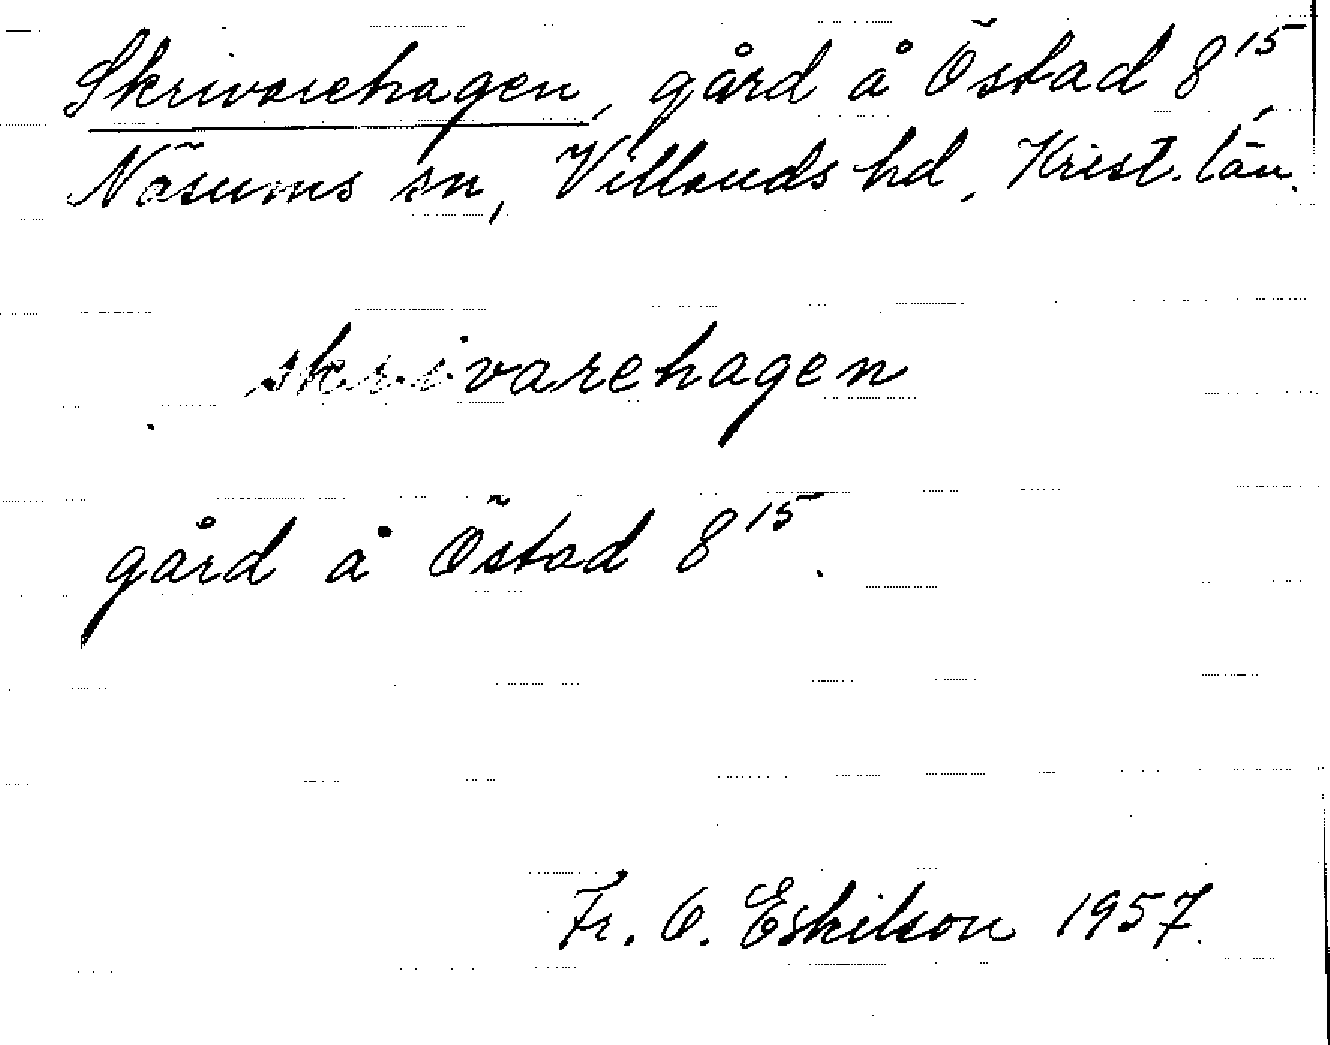 Skrivarehagen, gård å Östad 8¹⁵,
Näsums sn, Villands hd, Krist. län.
skrivarehagen
gård å Östad 8¹⁵.
Fr. O. Eskilson 1957.